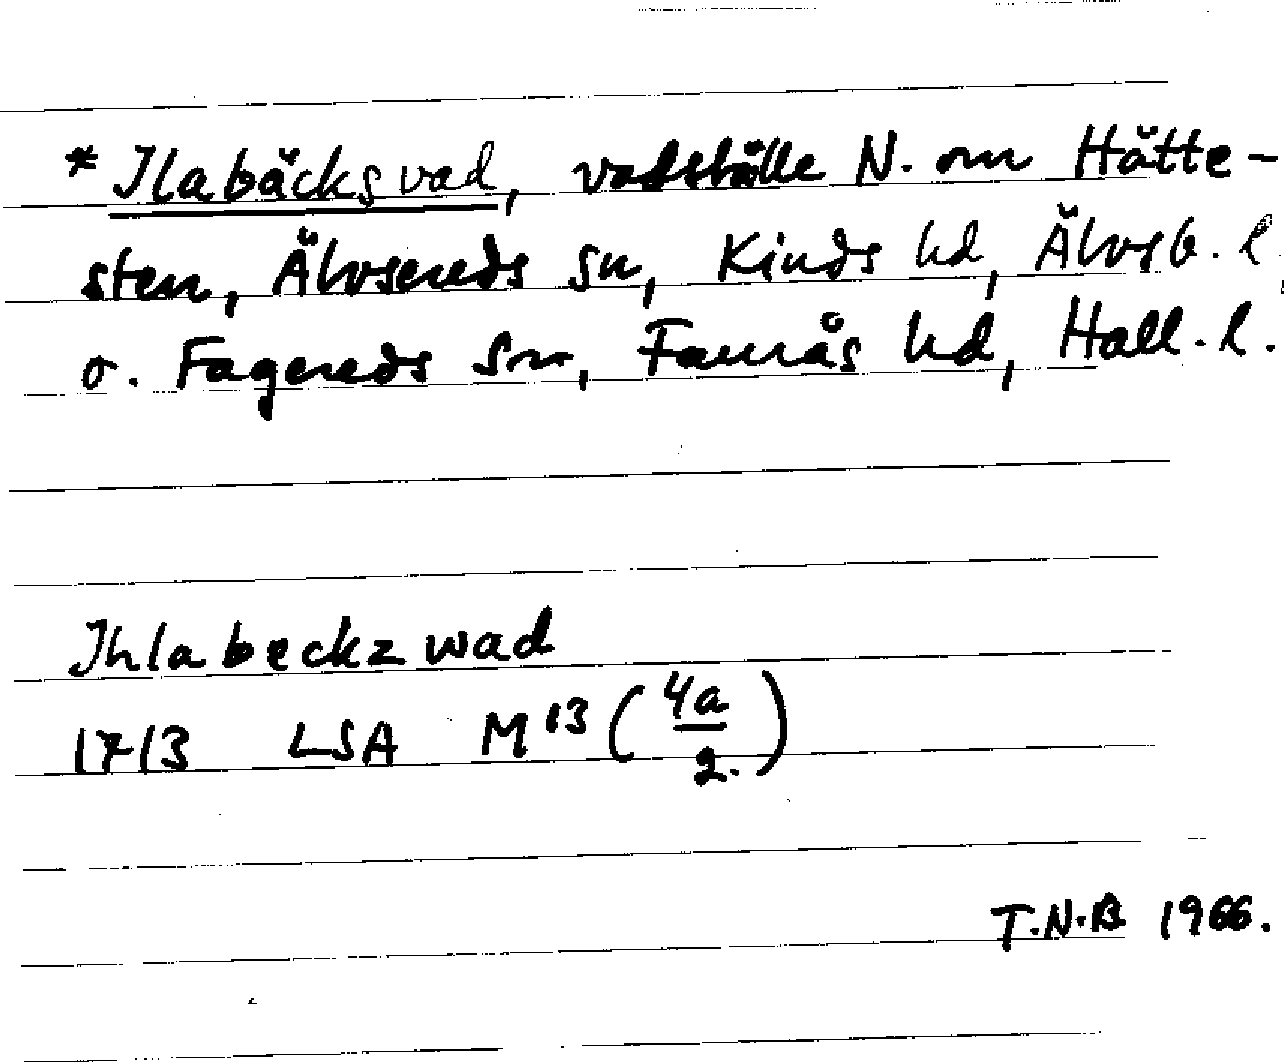 * Ilabäcksvad, vadställe N. om Hätte-
sten, Älvsereds sn, Kinds hd, Älvsb. l
o. Fagereds sn, Faurås hd, Hall. l.
Ihlabeckz wad
1713 LSA M13 (4a/2.)
T.N.B 1966.